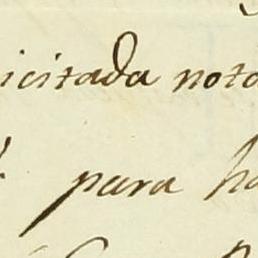 icitada nota
para ha